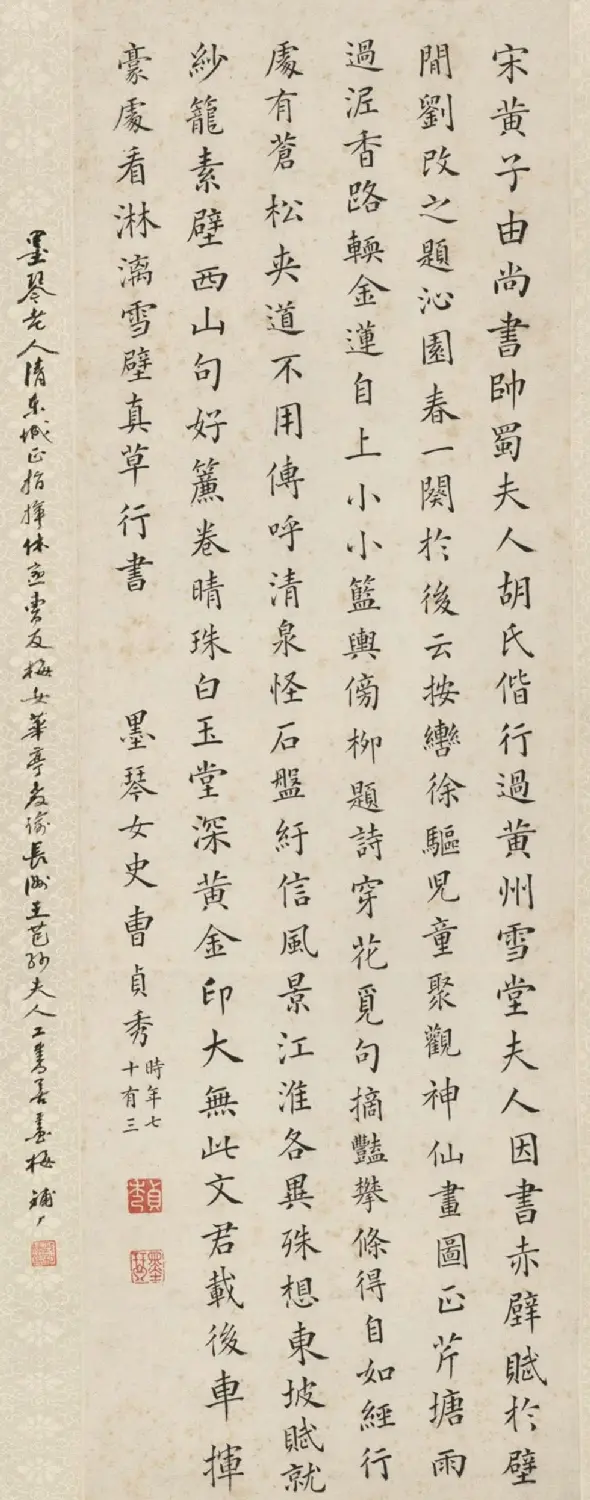 宋黃子由尚書帥蜀夫人胡氏偕行過黃州雪堂夫人因書赤壁賦於壁
間劉改之題沁園春一闋於後云按轡徐驅兒童聚觀神仙畫圖正芹塘雨
過泥香路輭金蓮自上小小籃輿傍柳題詩穿花覓句摘豔攀條得自如經行
處有蒼松夾道不用傳呼清泉怪石盤紆信風景江淮各異殊想東坡賦就
紗籠素壁西山句好簾卷晴珠白玉堂深黃金印大無此文君載後車揮
豪處看淋漓雪壁真草行書
墨琴女史曹貞秀
時年七
十有三
貞秀
墨琴
墨琴老人清東城正指揮休寧曹友梅女華亭教諭長洲王芑孫夫人工書善畫梅